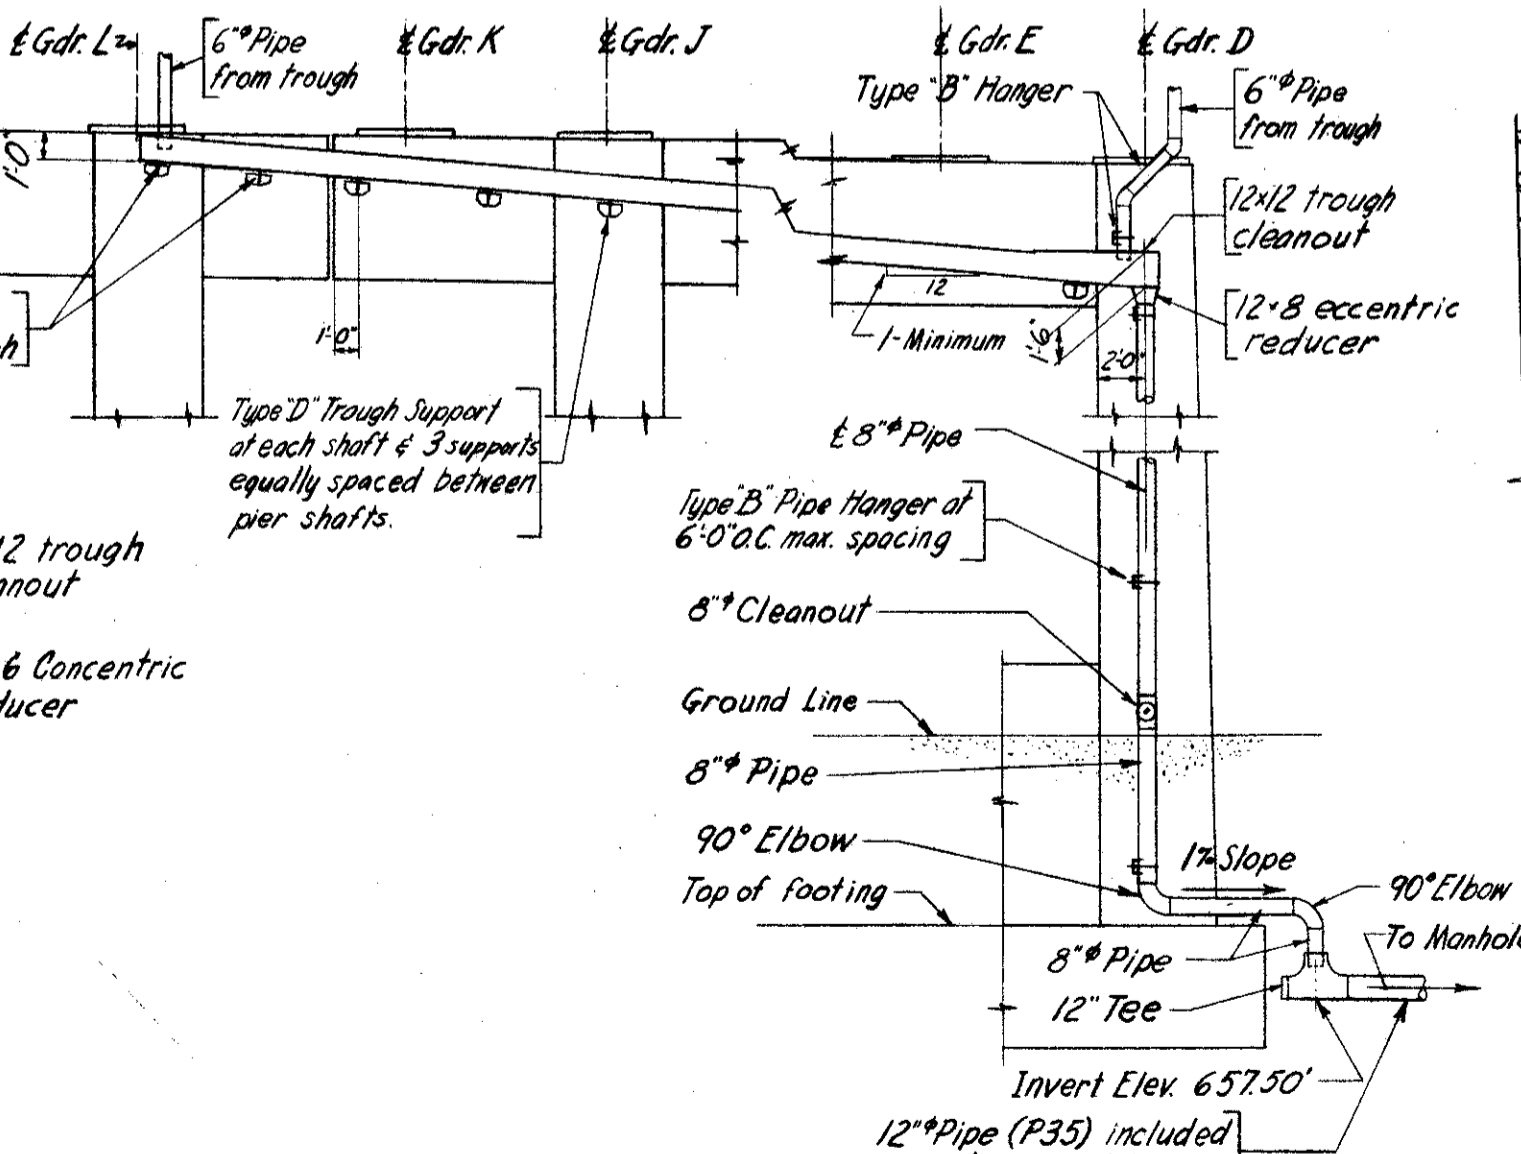 ℄ Gdr. L
6"φ Pipe
from trough
℄ Gdr. K
℄ Gdr. J
℄ Gdr. E
℄ Gdr. D
Type "B" Hanger
6"φ Pipe
from trough
1'-0"
12x12 trough
cleanout
12
1-Minimum
1'-6"
2'-0"
12x8 eccentric
reducer
1'-0"
Type "D" Trough Support
at each shaft & 3 supports
equally spaced between
pier shafts.
℄ 8"φ Pipe
Type "B" Pipe Hanger at
6'-0" O.C. max. spacing
12 trough
8"φ Cleanout
6 Concentric
Ground Line
8"φ Pipe
90° Elbow
1% Slope
Top of footing
90° Elbow
To Manhole
8"φ Pipe
12" Tee
Invert Elev. 657.50'
12"φ Pipe (P35) included